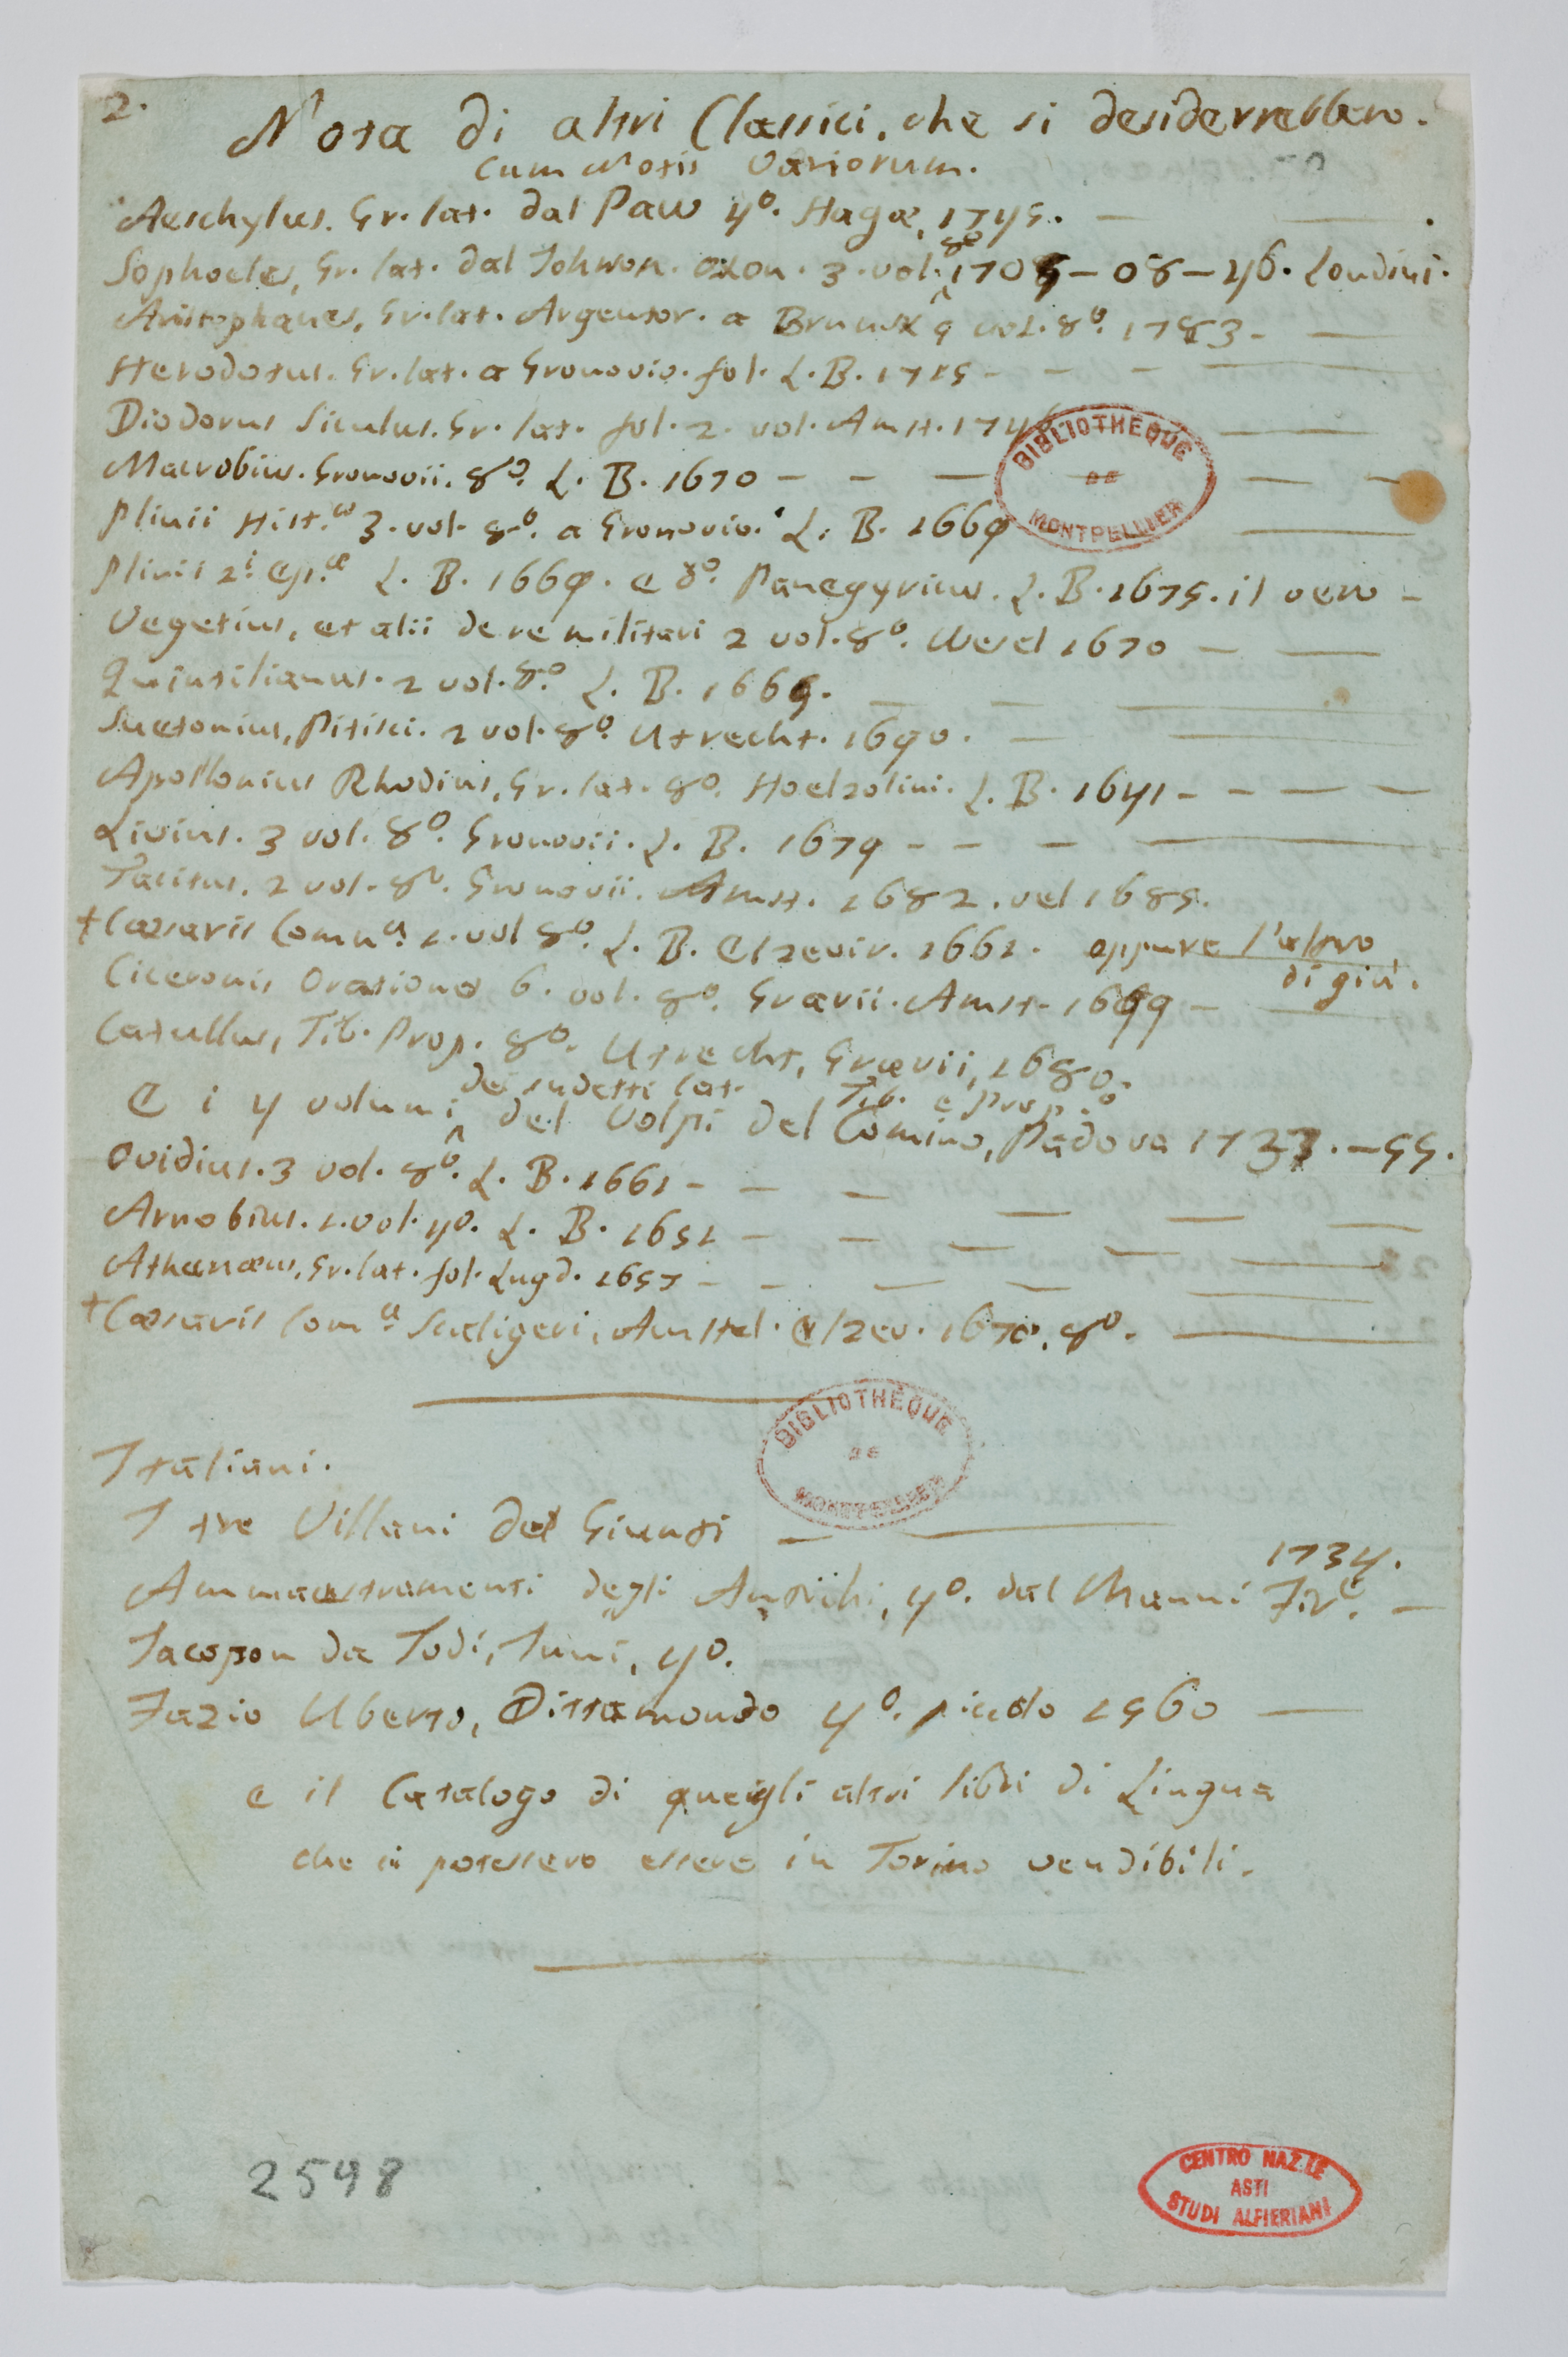 2.
Nota di altri Classici, che si desiderrebbero.
Cum Notis Variorum.
Aeschylus. Gr. lat. dal Paw 4º. Hagæ, 1745. — — .
Sophocles, Gr. lat. dal Johnson. Oxon. 3. vol. 8º 1705 — 08 — 46. Londini.
Aristophanes, Gr. lat. Argentor. a Brunck 4 vol. 8º. 1783. —
Herodotus. Gr. lat. a Gronovio. fol. L. B. 1715 — — — —
Diodorus Siculus. Gr. lat. fol. 2. vol. Amst. 174 —
Macrobius. Gronovii. 8º. L. B. 1670 — — — — —
Plinii Hist.æ 3. vol. 8º. a Gronovio. L. B. 1669 —
Plinii 2.i Ep.æ L. B. 1669. e 8º. Panegyricus. L. B. 1675. il vero —
Vegetius, et alii de re militari 2 vol. 8º. Wesel 1670 — —
Quintilianus. 2 vol. 8º. L. B. 1665. — — —
Suetonius, Pitisci. 2 vol. 8º. Utrecht. 1690. — —
Apollonius Rhodius, Gr. lat. 8º. Hoelzolini. L. B. 1641 — — — —
Livius. 3 vol. 8º. Gronovii. L. B. 1679 — — — —
Tacitus. 2 vol. 8º. Gronovii. Amst. 1682. vel 1685.
+ Cæsaris Comn.a 1. vol 8º. L. B. Elzevir. 1661. oppure l'altro
di giù.
Ciceronis Orationes 6. vol. 8º. Grævii. Amst. 1699 — —
Catullus, Tib. Prop. 8º. Utrecht, Grævii, 1680.
dei sudetti lat. Tib. e Prop.o
E i 4 volumi del Volpi del Comino, Padova 1737. — 55.
Ovidius. 3 vol. 8º. L. B. 1661 — — — — — —
Arnobius. 1. vol. 4º. L. B. 1651 — — — — —
Athenæus, Gr. lat. fol. Lugd. 1657 — — — — —
+ Cæsaris Com.a Scaligeri, Amstel. Elzev. 1670. 8º. —
Italiani.
I tre Villani del Giunti — —
1734.
Ammaestramenti degli Antichi, 4º. dal Manni Fir.e —
Jacopon da Todi, 4º.
Fazio Uberto, Dittamondo 4º. piccolo 1560 —
e il Catalogo di quegli altri libri di Lingua
che ci potessero essere in Torino vendibili.
2598
BIBLIOTHÈQUE
DE
MONTPELLIER
BIBLIOTHÈQUE
DE
MONTPELLIER
CENTRO NAZ.LE
ASTI
STUDI ALFIERIANI